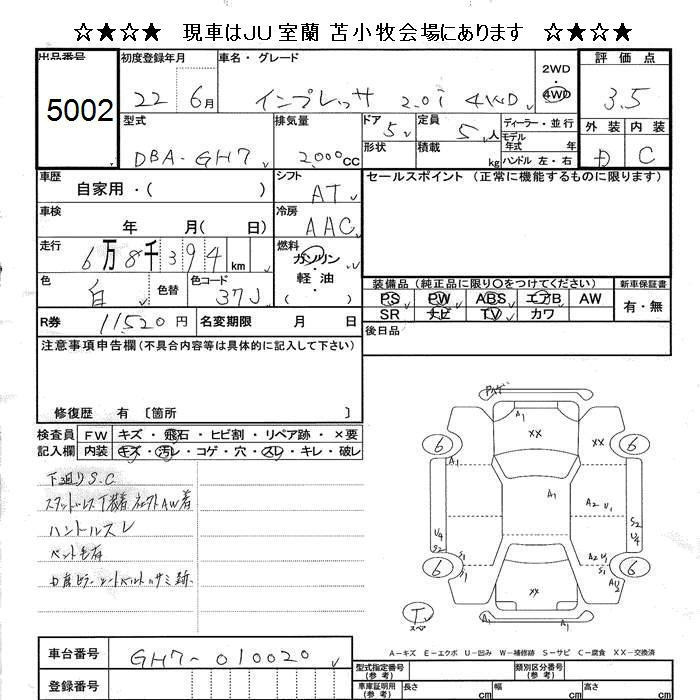 ☆★☆★ 現車はJU室蘭 苫小牧会場にあります ☆★☆★
出品番号 初度登録年月 車名・グレード 2WD 評価点
5002 22 6月 インプレッサ 2.0i 4WD 4WD 3.5
型式 排気量 ドア 5 定員 5人 ディーラー・並行 外装 内装
DBA-GH7 2,000cc 形状 積載 kg モデル年式 年 C
ハンドル 左・右
車歴 シフト セールスポイント (正常に機能するものに限ります)
自家用・( ) AT
車検 冷房
年 月( 日) AAC
走行 燃料
6万8千394 km ガソリン・軽油
色 色替 色コード ( )
白 37J 装備品 (純正品に限り○をつけてください) 新車保証書
PS PW ABS エアB AW 有・無
R券 11,520円 名変期限 月 日 SR ナビ TV カワ
注意事項申告欄(不具合内容等は具体的に記入して下さい) 後日品
修復歴 有 〔箇所 〕
検査員 FW キズ・飛石・ヒビ割・リペア跡・×要
記入欄 内装 キズ・汚レ・コゲ・穴・スレ・キレ・破レ
下廻りS.C
ハンドルスレ
ペット毛有
A1 XX XX 6 6
A1 A1 A2 U1
U4 S2 S2 U4
S1 S1 A2 U1 S1
6 XX 6 AU2
T スペア A1 A1
A-キズ E-エクボ U-凹み W-補修跡 S-サビ C-腐食 XX-交換済
車台番号 GH7-010020 型式指定番号(参考) 類別区分番号(参考)
登録番号 車庫証明用(参考) 長さ cm 幅 cm 高さ cm